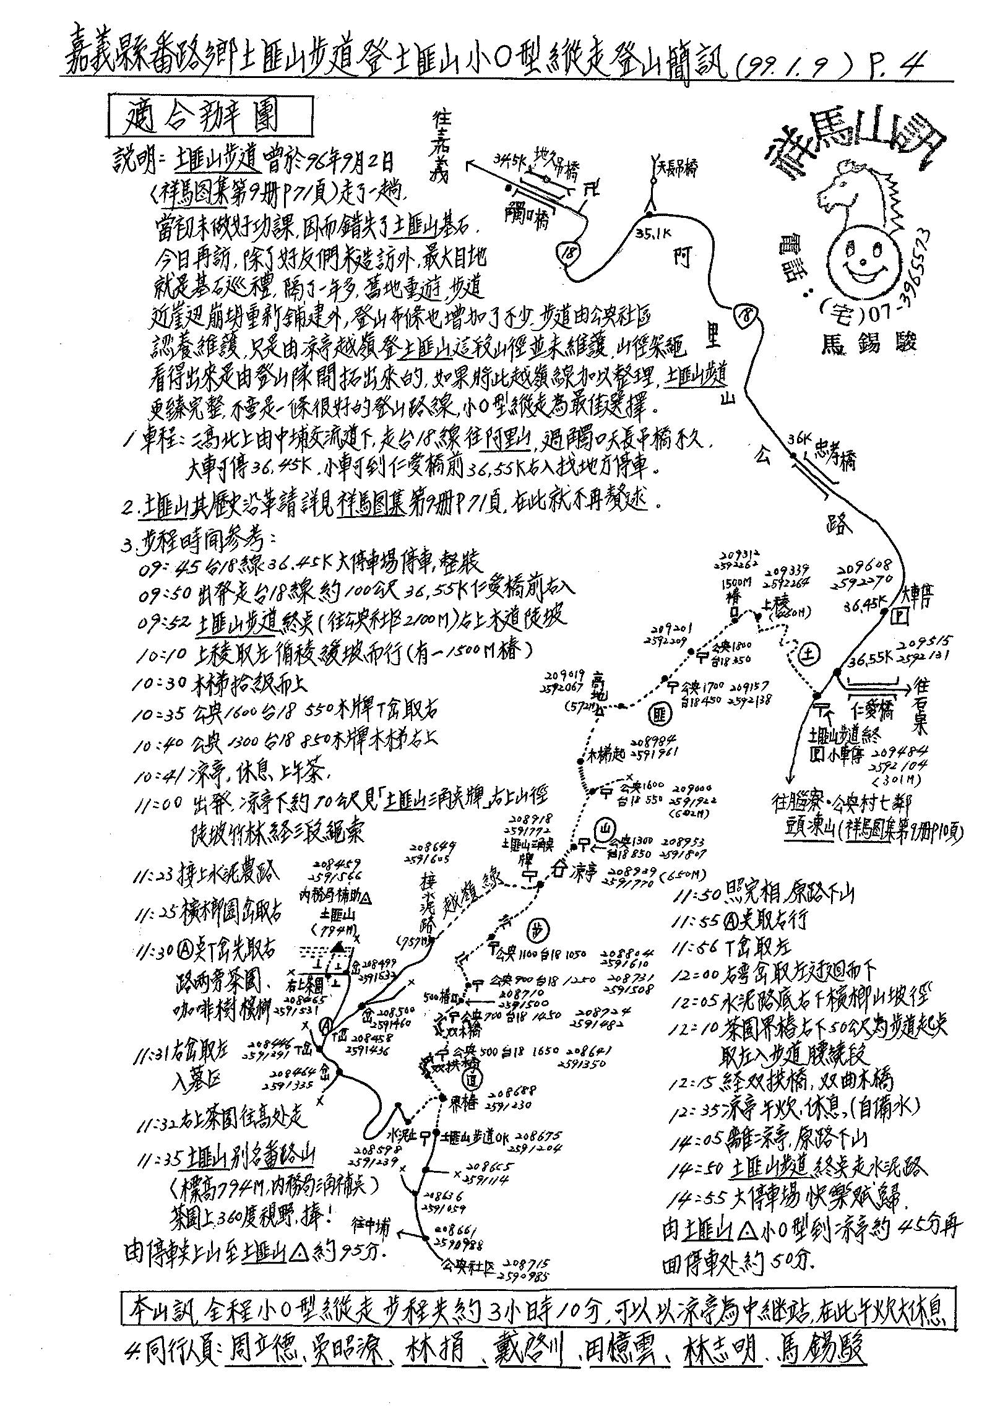 嘉義縣番路鄉土匪山步道登土匪山小O型縱走登山簡訊(99.1.9) P.4
適合辦團
祥馬山訊
電話:(宅)07-3965573
馬錫駿
說明:土匪山步道曾於96年9月2日
(祥馬图集第9册P71頁)走了一趟.
當初未做好功課,因而錯失了土匪山基石.
今日再訪,除了好友們未造訪外,最大目地
就是基石巡禮,隔了一年多,舊地重遊,步道
近崖边崩坍重新舖建外,登山布條也增加了不少.步道由公央社區
認養維護,只是由凉亭越嶺登土匪山這段山徑並未維護,山徑架繩
看得出來是由登山隊開拓出來的,如果將此越嶺線加以整理,土匪山步道
更臻完整,不啻是一條很好的登山路線,小O型縱走為最佳選擇。
1.車程:二高北上由中埔交流道下,走台18線往阿里山,過觸口天長吊橋不久,
大車可停36.45K.小車可到仁愛橋前36.55K右入找地方停車。
2.土匪山其歷史沿革請詳見祥馬图集第9册P71頁,在此就不再贅述.
3.步程時間参考:
09:45 台18線36.45K大停車場停車,整裝
09:50 出發走台18線約100公尺36.55K仁愛橋前右入
09:52 土匪山步道終奌(往公央社区2100M)右上木道陡坡
10:10 上稜取左循稜緩坡而行(有一1500M樁)
10:30 木梯拾級而上
10:35 公央1600台18 550木牌T岔取右
10:40 公央1300台18 850木牌木梯右上
10:41 凉亭,休息,上午茶.
11:00 出發,凉亭下約70公尺見「土匪山三角奌牌」右上山徑
陡坡竹林経三段繩索
11:23 接上水泥農路
11:25 檳榔園岔取右
11:30 Ⓐ奌T岔先取右
路两旁茶園、
咖啡樹檳榔
11:31 右岔取左
入墓区
11:32 右上茶園往高处走
11:35 土匪山别名番路山
(標高794M,内務局三角補奌)
茶園上,360度視野,捧!
由停車奌上山至土匪山△約95分.
11:50 照完相,原路下山
11:55 Ⓐ奌取右行
11:56 T岔取左
12:00 右彎岔取左迂迴而下
12:05 水泥路底右下檳榔山坡徑
12:10 茶園界樁右下50公尺為步道起奌
取左入步道腰繞段
12:15 経双拱橋,双曲木橋
12:35 凉亭午炊,休息,(自備水)
14:05 離凉亭,原路下山
14:50 土匪山步道終奌走水泥路
14:55 大停車場快樂賦歸.
由土匪山△小O型到凉亭約45分再
回停車处約50分.
往嘉義
34.5K
地久吊橋
觸口橋
卍
天長吊橋
35.1K
18
阿里山公路
18
36K
忠孝橋
209608
2592270
大車停
36.45K
P
209515
2592131
36.55K
往石桌
仁愛橋
土匪山步道終
P小車停
209484
2592104
(301M)
往腦寮、公央村七鄰
頭凍山(祥馬图集第9册P10頁)
209312
2592262
1500M樁
209339
2592264
上稜
土
209201
2592209
公央1800
台18 350
公央1700
台18 450
209157
2592138
匪
209019
2592067
高地
(572M)
木梯起
208984
2591961
公央1600
台18 550
209000
2591922
(602M)
山
公央1300
台18 850
208953
2591807
凉亭
208929
2591770
(650M)
208918
2591772
土匪山三角奌牌
208649
2591605
接水泥路
(757M)
越嶺線
步
公央1100台18 1050
208804
2591610
公央900台18 1250
208731
2591508
500樁
208710
2591500
公央700台18 1450
208724
2591482
双木橋
公央500台18 1650
208641
2591350
双拱橋
道
界樁
208688
2591230
土匪山步道OK
208675
2591204
水泥止
208598
2591239
208655
2591114
208636
2591059
往中埔
208661
2590988
公央社区
208715
2590985
208459
2591566
内務局補助△
土匪山
(794M)
右上茶園
岔
208499
2591532
208465
2591531
岔
208500
2591460
T岔
208458
2591436
Ⓐ
T岔
208446
2591291
208464
2591335
岔
本山訊,全程小O型縱走步程共約3小時10分,可以以凉亭為中継站,在此午炊大休息
4.同行人員:周立德、吳昭源、林捐、戴啓川、田憶雲、林志明、馬錫駿